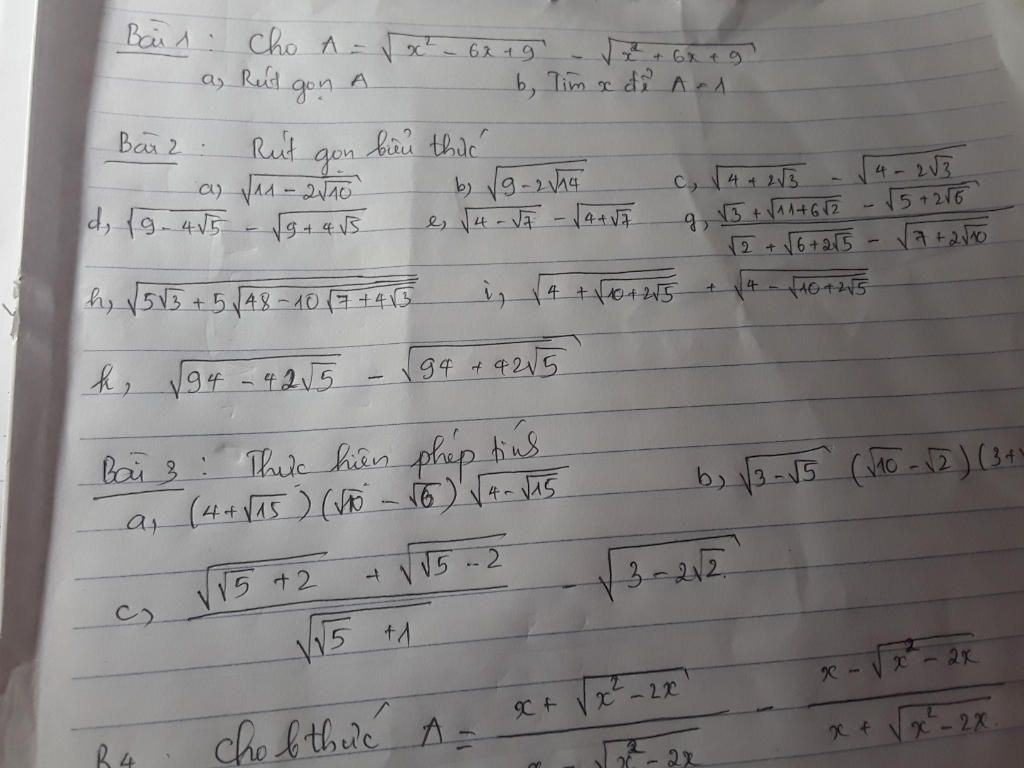 Bài 1 : Cho A = √(x² - 6x + 9) - √(x² + 6x + 9)
a, Rút gọn A b, Tìm x để A = 1
Bài 2 : Rút gọn biểu thức
a) √(11 - 2√10) b) √(9 - 2√14) c, √(4 + 2√3) - √(4 - 2√3)
d, √(9 - 4√5) - √(9 + 4√5) e, √(4 - √7) - √(4 + √7) g, (√3 + √(11 + 6√2) - √(5 + 2√6)) / (√2 + √(6 + 2√5) - √(7 + 2√10))
h, √(5√3 + 5√(48 - 10√(7 + 4√3))) i, √(4 + √(10 + 2√5)) + √(4 - √(10 + 2√5))
k, √(94 - 42√5) - √(94 + 42√5)
Bài 3 : Thực hiện phép tính
a, (4 + √15)(√10 - √6) √(4 - √15) b, √(3 - √5) (√10 - √2)(3 +
c, (√(√5 + 2) + √(√5 - 2)) / √(√5 + 1) - √(3 - 2√2)
B4 : Cho b thức A = (x + √(x² - 2x)) / (x - √(x² - 2x)) - (x - √(x² - 2x)) / (x + √(x² - 2x))